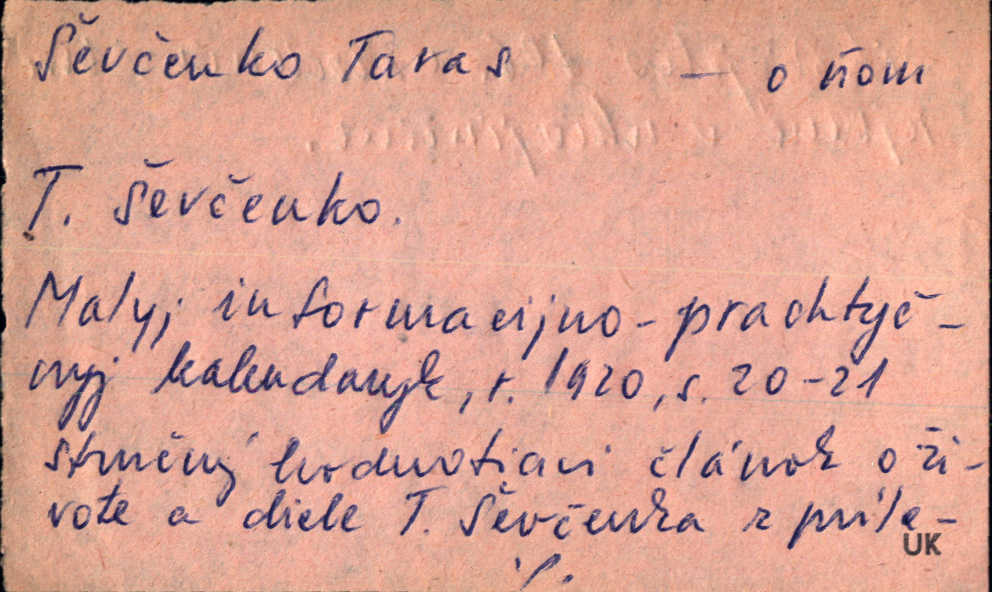 Ševčenko Taras — o ňom
T. Ševčenko.
Malyj informacijno-prachtyč-
nyj kalendaryk, r. 1920, s. 20-21
stručný hodnotiaci článok o ži-
vote a diele T. Ševčenka z príle-
UK
./.